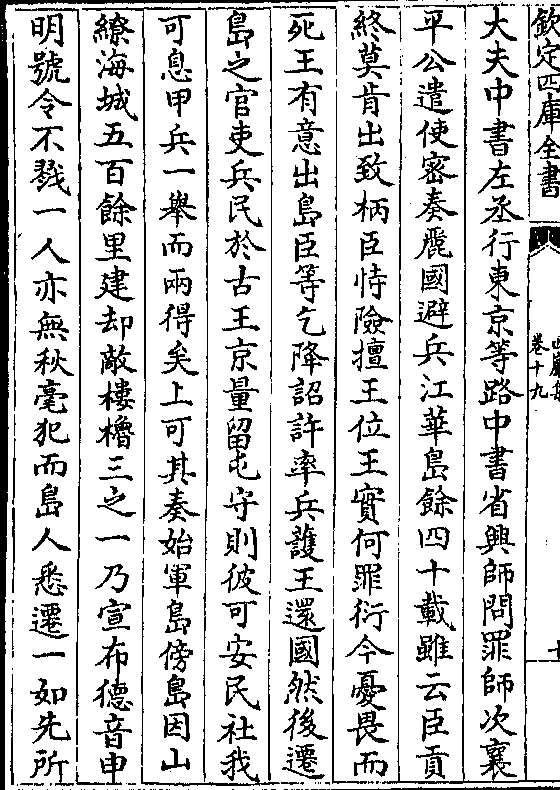 欽定四庫全書
卷十九
大夫中書左丞行東京等路中書省興師問罪師次襄
平公遣使密奏麗國避兵江華島餘四十載雖云臣貢
終莫肯出致柄臣恃險擅王位王實何罪衍今憂畏而
死王有意出島臣等乞降詔許率兵護王還國然後遷
島之官吏兵民於古王京量留屯守則彼可安民社我
可息甲兵一舉而兩得矣上可其奏始軍島傍島因山
繚海城五百餘里建却敵樓櫓三之一乃宣布德音申
明號令不戮一人亦無秋毫犯而島人悉遷一如先所